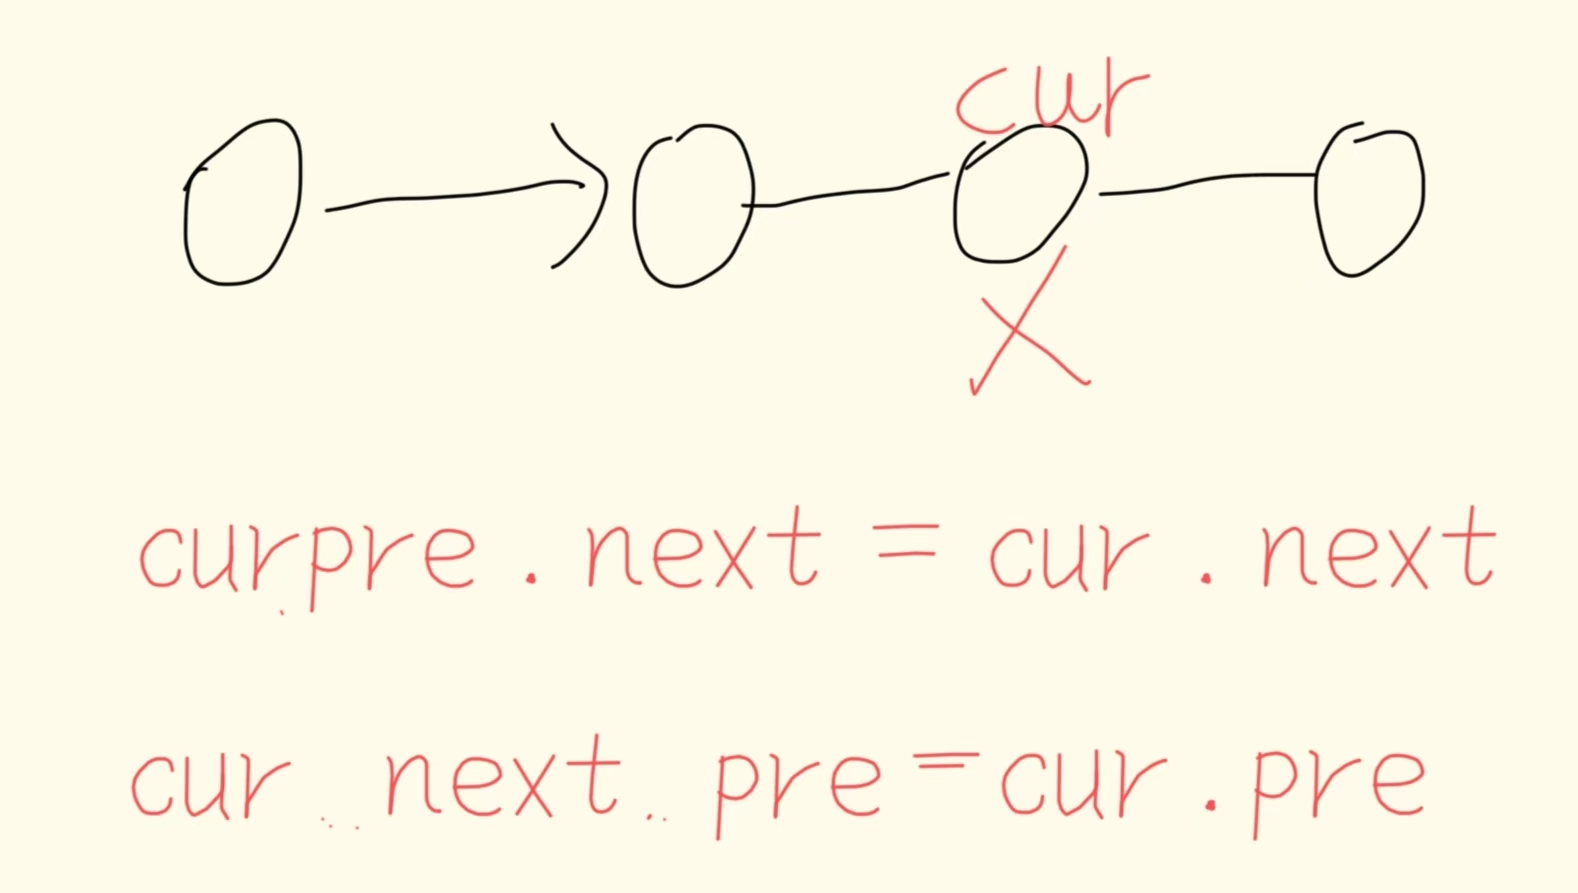 cur
curpre . next = cur . next
cur . next . pre = cur . pre